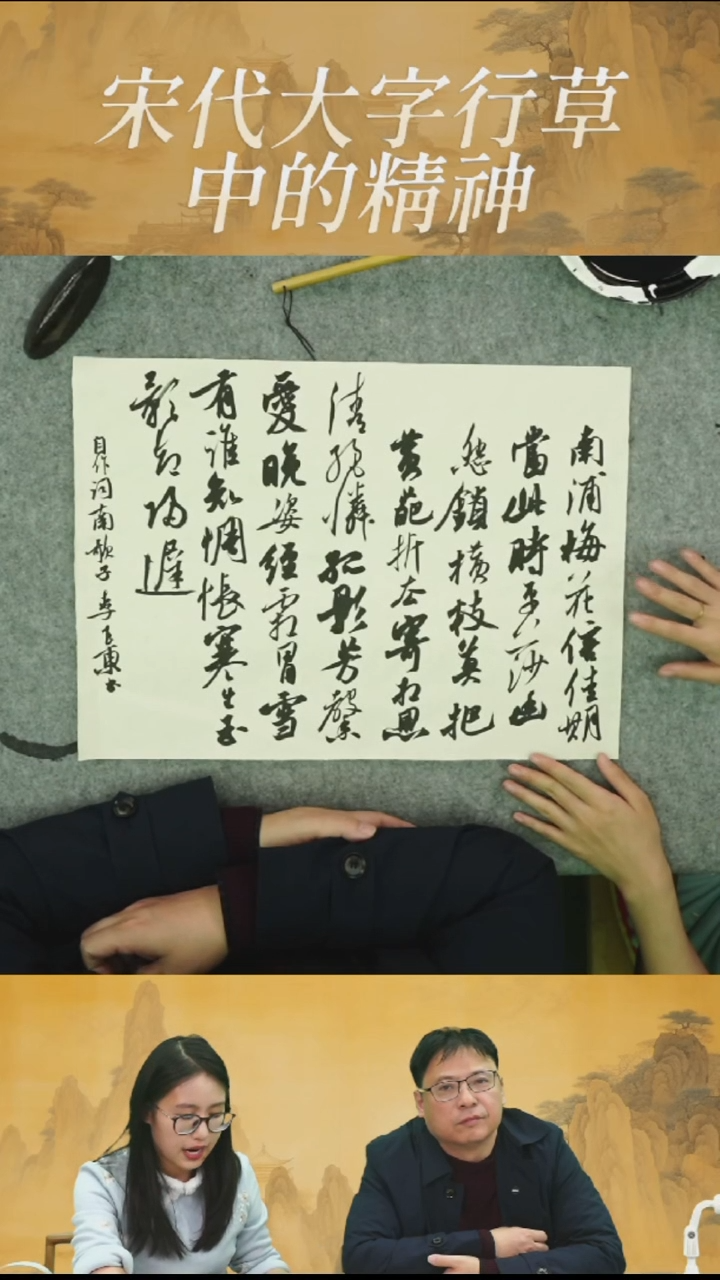 宋代大字行草
中的精神
南浦梅花信佳期
當此時平沙幽
愁鎖橫枝莫把
黃葩折去寄相思
清絕憐孤影芳馨
愛晚姿經霜冒雪
有誰知惆悵寒生玉
影却歸遲
自作词南歌子李